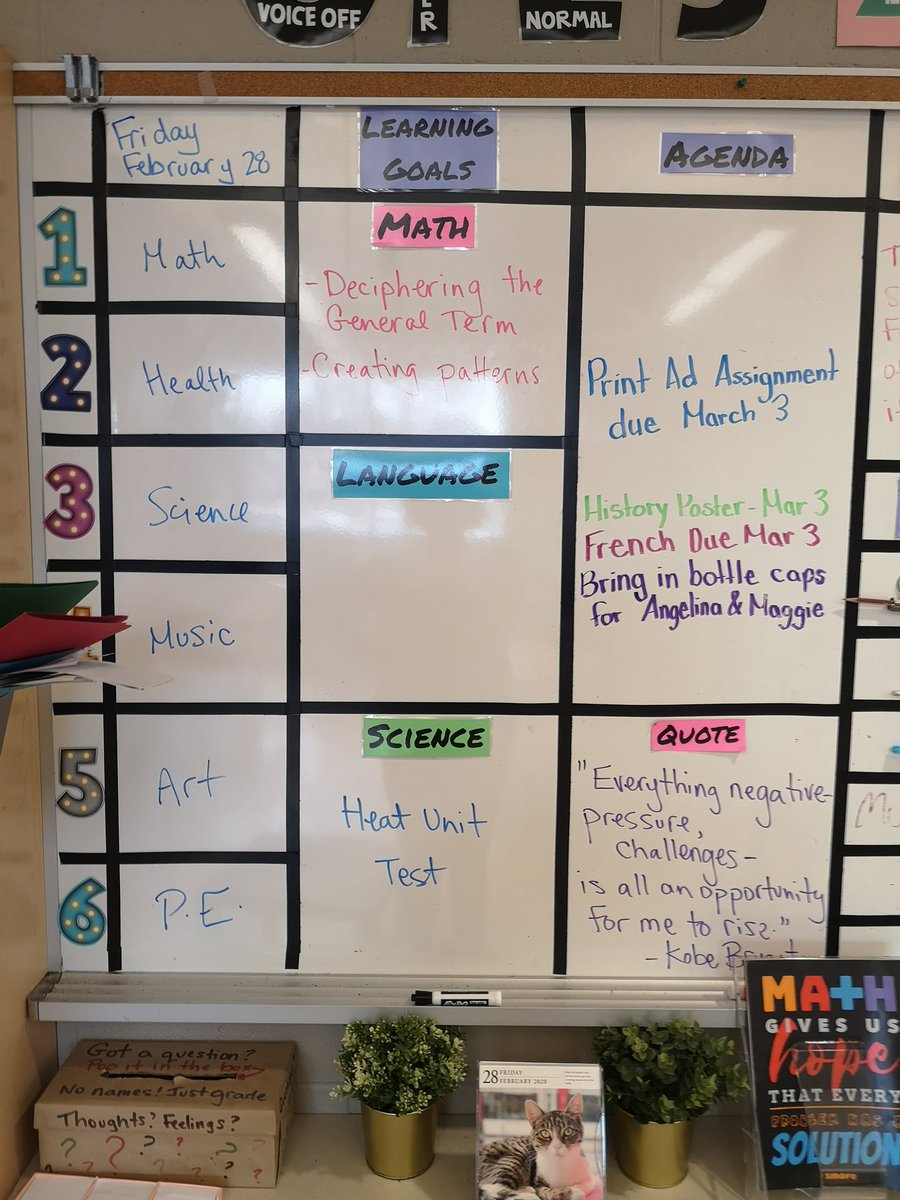 VOICE OFF
NORMAL
Friday
February 28
LEARNING
GOALS
AGENDA
1
Math
2
Health
3
Science
Music
5
Art
6
P.E.
MATH
-Deciphering the
General Term
-Creating patterns
LANGUAGE
SCIENCE
Heat Unit
Test
Print Ad Assignment
due March 3
History Poster-Mar 3
French Due Mar 3
Bring in bottle caps
for Angelina & Maggie
QUOTE
"Everything negative-
pressure,
challenges-
is all an opportunity
for me to rise."
-Kobe
Got a question?
Pop it in the box
No names! Just grade
Thoughts? Feelings?
28 FRIDAY
FEBRUARY 2020
MATH
GIVES US
hope
THAT EVERY
PROBLEM HAS A
SOLUTION